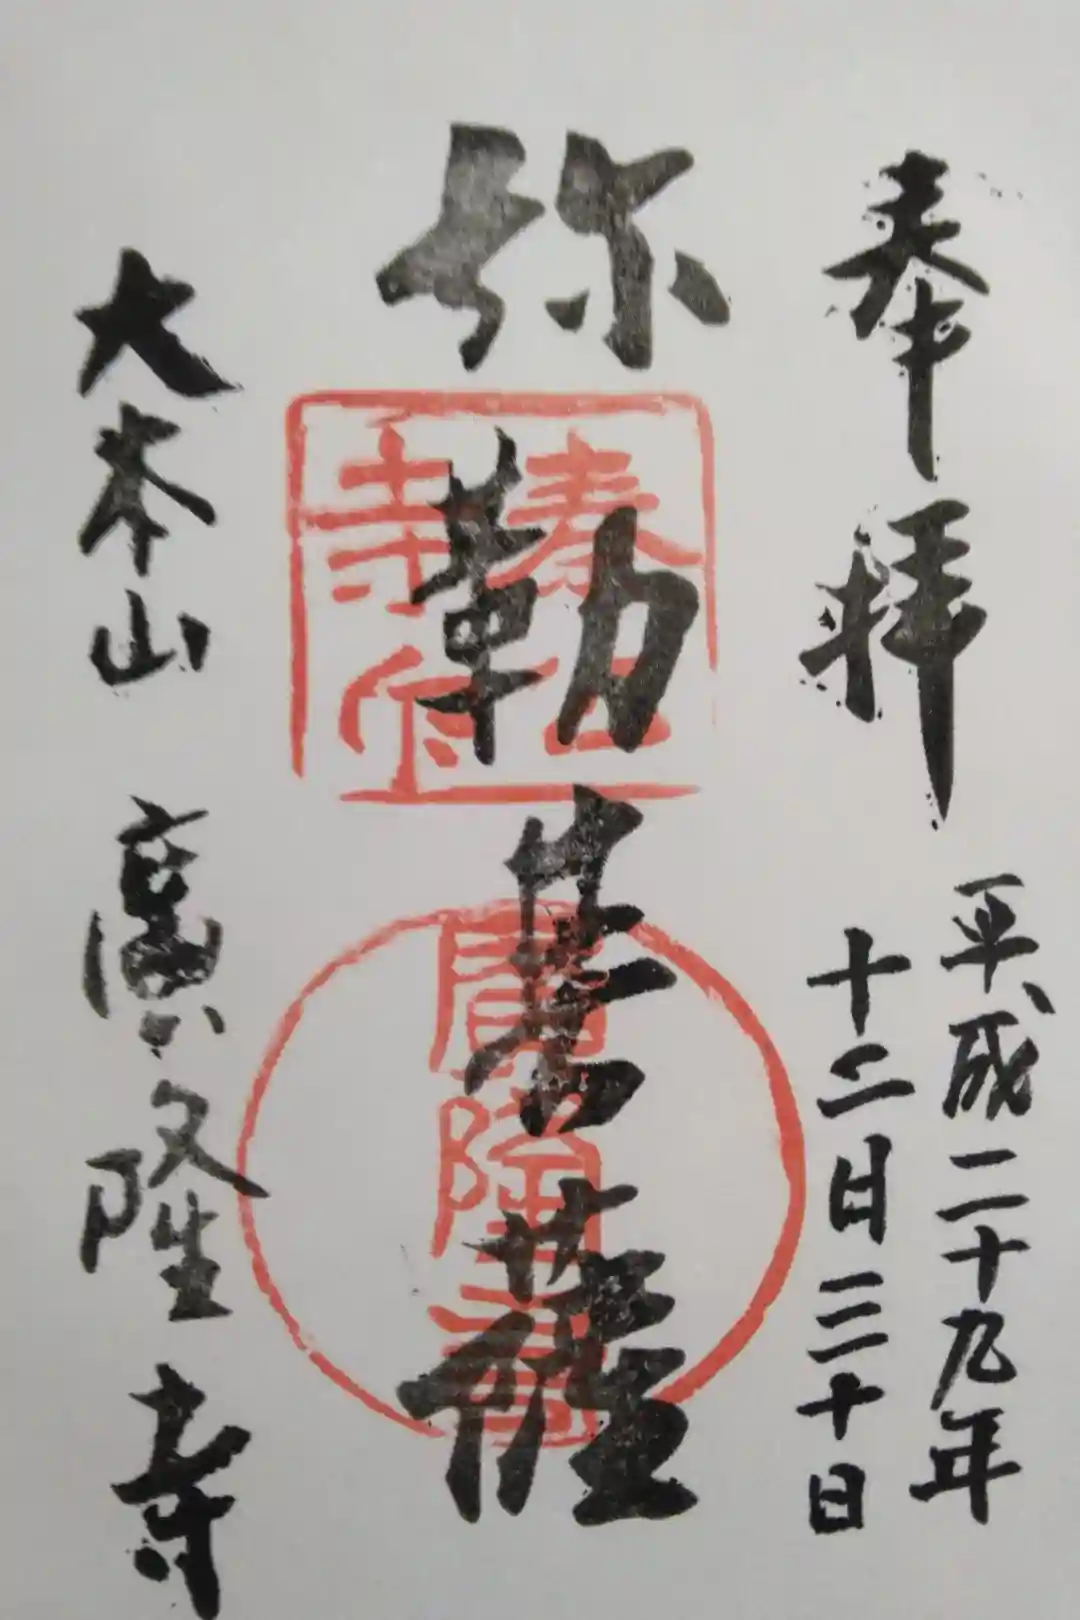 奉拝
平成二十九年
十二日三十日
弥勒菩薩
秦公
寺印
廣隆寺
大本山 廣隆寺